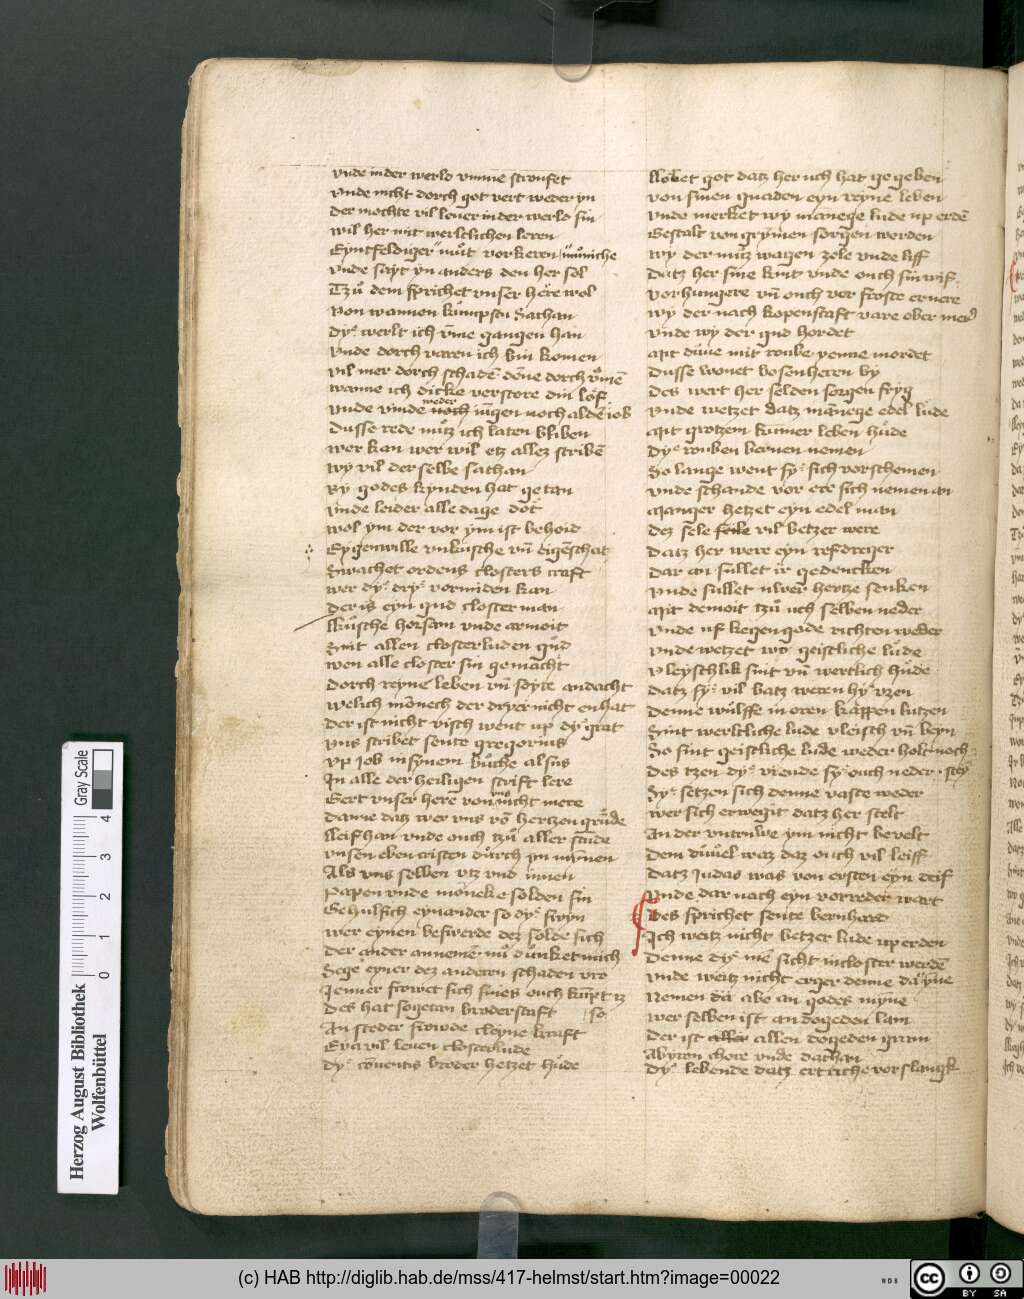 vnde in der werld vmme stroufet
vnde nicht dorch got vert weder yn
der mochte vil lever in der werld sin
wil her mit werltlichen leren
Eyntfeldiger můt vorkeren můniche
vnde sayt yn anders den her sol
Tzů dem sprichet vnser here wol
von wannen kůmpstu Sathan
dy werlt ich vme gangen han
vnde dorch varen ich bin komen
vil mer dorch schadē dēne dorch vromē
wanne ich dicke verstore din lof
vnde vinde weder iūgen noch aldē iob
Dusse rede můz ich laten bliben
wer kan wer wil etz allez scribē
wy vil der selbe sathan
By godes kynden hat getan
vnde leider alle dage dot
wol ym der vor ym ist behoid
Eygenwille vnkusche vn̄ eigēschat
Swachet ordens closters craft
wer dy dry vormiden kan
Der is eyn gud closter man
kůsche horsam vnde armoit
Sint allen closterluden gůd
wen alle closter sin gemacht
Dorch reyne leben vn̄ soyte andacht
welich mōnech der dryer nicht en hat
Der ist nicht visch went up dy grat
vns scribet sente gregorius
vp Job in synem bůche alsus
In alle der heiligen scrift lere
Gert vnser here von vns nicht mere
Danne datz wer vns vō hertzen grůde
lleif han vnde ouch tzů aller stūde
vnsen eben cristen důrch yn mȳnen
Als vns selben vtz vnd innen
Papen vnde moneke solden sin
Behulfich eynander so dy swyn
wer eynen beswerde dez solde sich
Der ander annemē nů důnket mich
Sege eyner dez anderen schaden vro
Jenner frowet sich sines ouch kūpt iz so
Des hat sogetan bruderscaft
An steder frowde cleyne kraft
Eya vil leuen closterlude
dy cōuentis broder hetzet hůde
llobet got datz her uch hat gegeben
von sinen gnaden eyn reyne leben
vnde merket wy manege lude up erdē
Gestalt von grymen sorgen werden
wy der můz wagen zele vnde liff
Datz her sine kint vnde ouch sin wif
vorhungere vn̄ ouch vor froste ernere
wy der nach kopenscaft vare ober mer
vnde wy der gud hordet
Mit duue mit roube yenne mordet
Dusse wonet bosen heren by
Des wert her selden sorgen fryg
vnde wetzet datz manege edel lude
Mit grotzem kumer leben hůde
Dy rouben bernen nemen
So lange went sy sich vorschemen
vnde schande vor ere sich nemen an
Manger hetzet eyn edel man
dez sele vil betzer were
Datz her were eyn
Dar an sullet ir gedencken
vnde sullet uwer hertze senken
Mit demoit tzů uch selben neder
vnde uf kegen gode richten weder
vnde wetzet wo geistliche lude
vleyschlik sint vn̄ wertlich hůde
datz sy vil batz weren hy vzen
Denne wůlffe in eren kappen lutzen
Sint werltliche lude vleisch vn̄ beyn
So sint geistliche lude weder holt noch steyn
Des tzen dy vrende sy ouch neder
Sy setzen sich denne vaste weder
wer sich erwegit datz her stelt
An der vntruwe ym nicht bevelt
Dem důuel waz daz ouch vil leiff
Datz Judas was von ersten eyn deif
vnde dar nach eyn vorreder wart
Des sprichet sente bernhard
Ich weitz nicht betzer lude up erden
Denne dy me sicht in closter werdē
vnde weitz nicht erger denne da yne
Nemen da abe an godes myne
wer selben ist an dogeden lam
der ist allen dogeden gram
Abyron chore vnde dathan
Dy lebende datz ertriche vorslangk
Herzog August Bibliothek
Wolfenbüttel
Gray Scale
0 1 2 3 4
(c) HAB http://diglib.hab.de/mss/417-helmst/start.htm?image=00022
WDB
cc BY SA